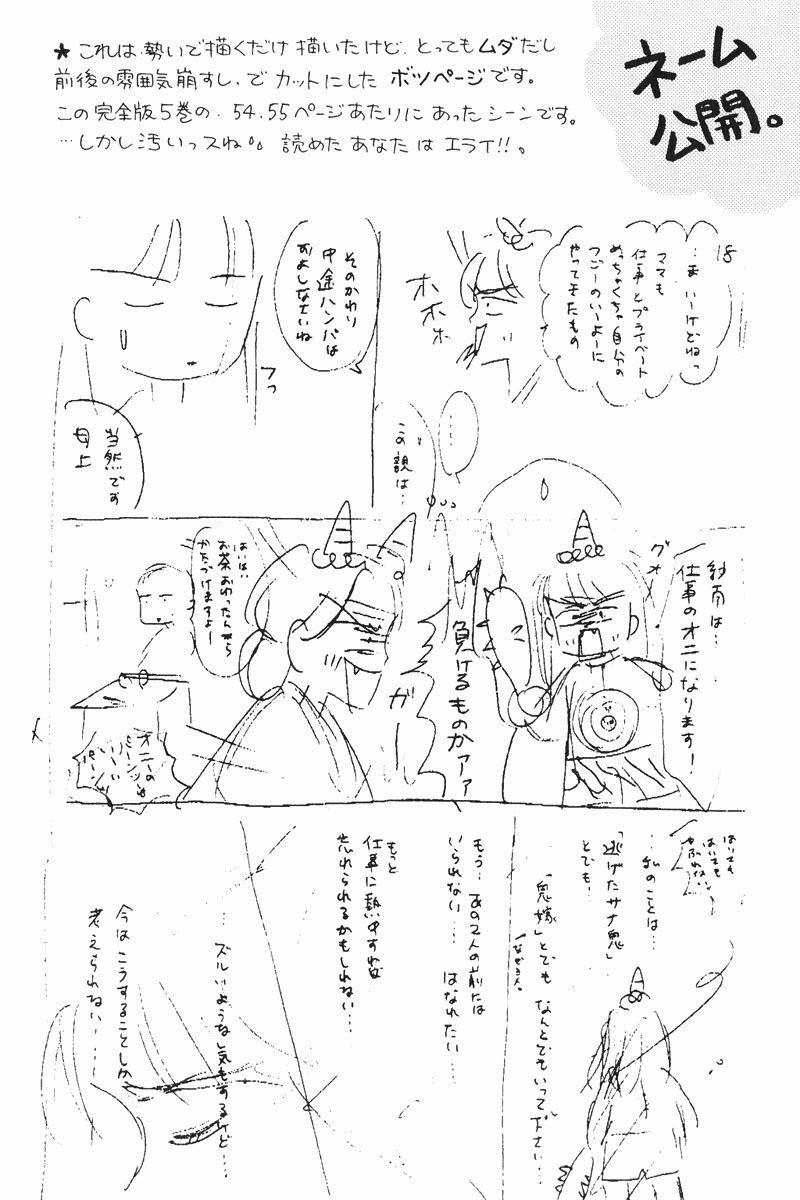 ネーム
公開。
★これは勢いで描くだけ描いたけど、とってもムダだし
前後の雰囲気崩すし、でカットにしたボツページです。
この完全版5巻の、54.55ページあたりにあったシーンです。
…しかし汚いっスね。読めたあなたはエライ!!。
18
…まいーけどねっ
ママも
仕事とプライベート
めっちゃくちゃ自分の
つごーのいーよーに
やってきたもの
ホホホ
そのかわり
中途ハンパは
およしなさいね
フっ
当然です
母上
……
この親は…
紗南は…
仕事のオニになります!
グオー
負けるものかァァ
ガ
はいはい
お茶おわったんなら
かたづけますよー
オニーの
パーンツは
いーい
パーンツ
はいても
はいても
やぶれない
…私のことは…
「逃げたサナ鬼」
とでも…
「鬼嫁」とでも なんとでもいって下さい…
もう…あの2人の前には
いられない… はなれたい…
もっと
仕事に熱中すれば
忘れられるかもしれない…
…ズルいような気もするけど…
今はこうすることしか
考えられない…